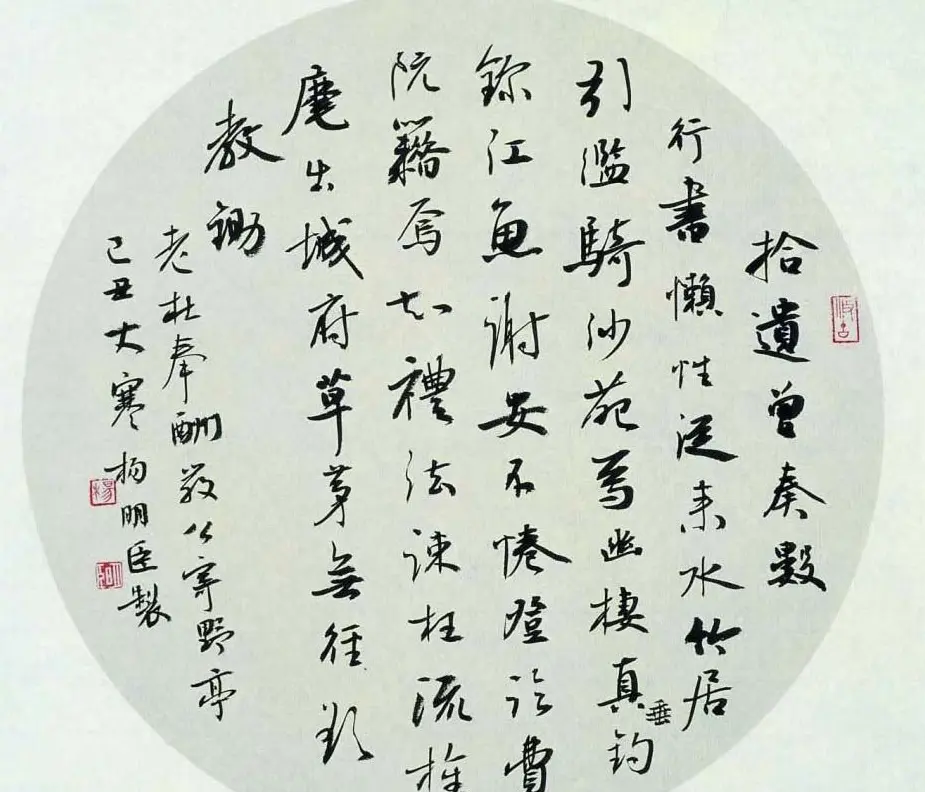 拾遺曾奏數
行書懶性從來水竹居
引濫騎沙苑馬幽棲真垂釣
錦江魚謝安不惓登臨費
阮籍焉知禮法疎枉流旌
麾出城府草茅無徑欲
教鋤
老杜奉酬嚴公寄野亭
己丑大寒楊明臣製
楊